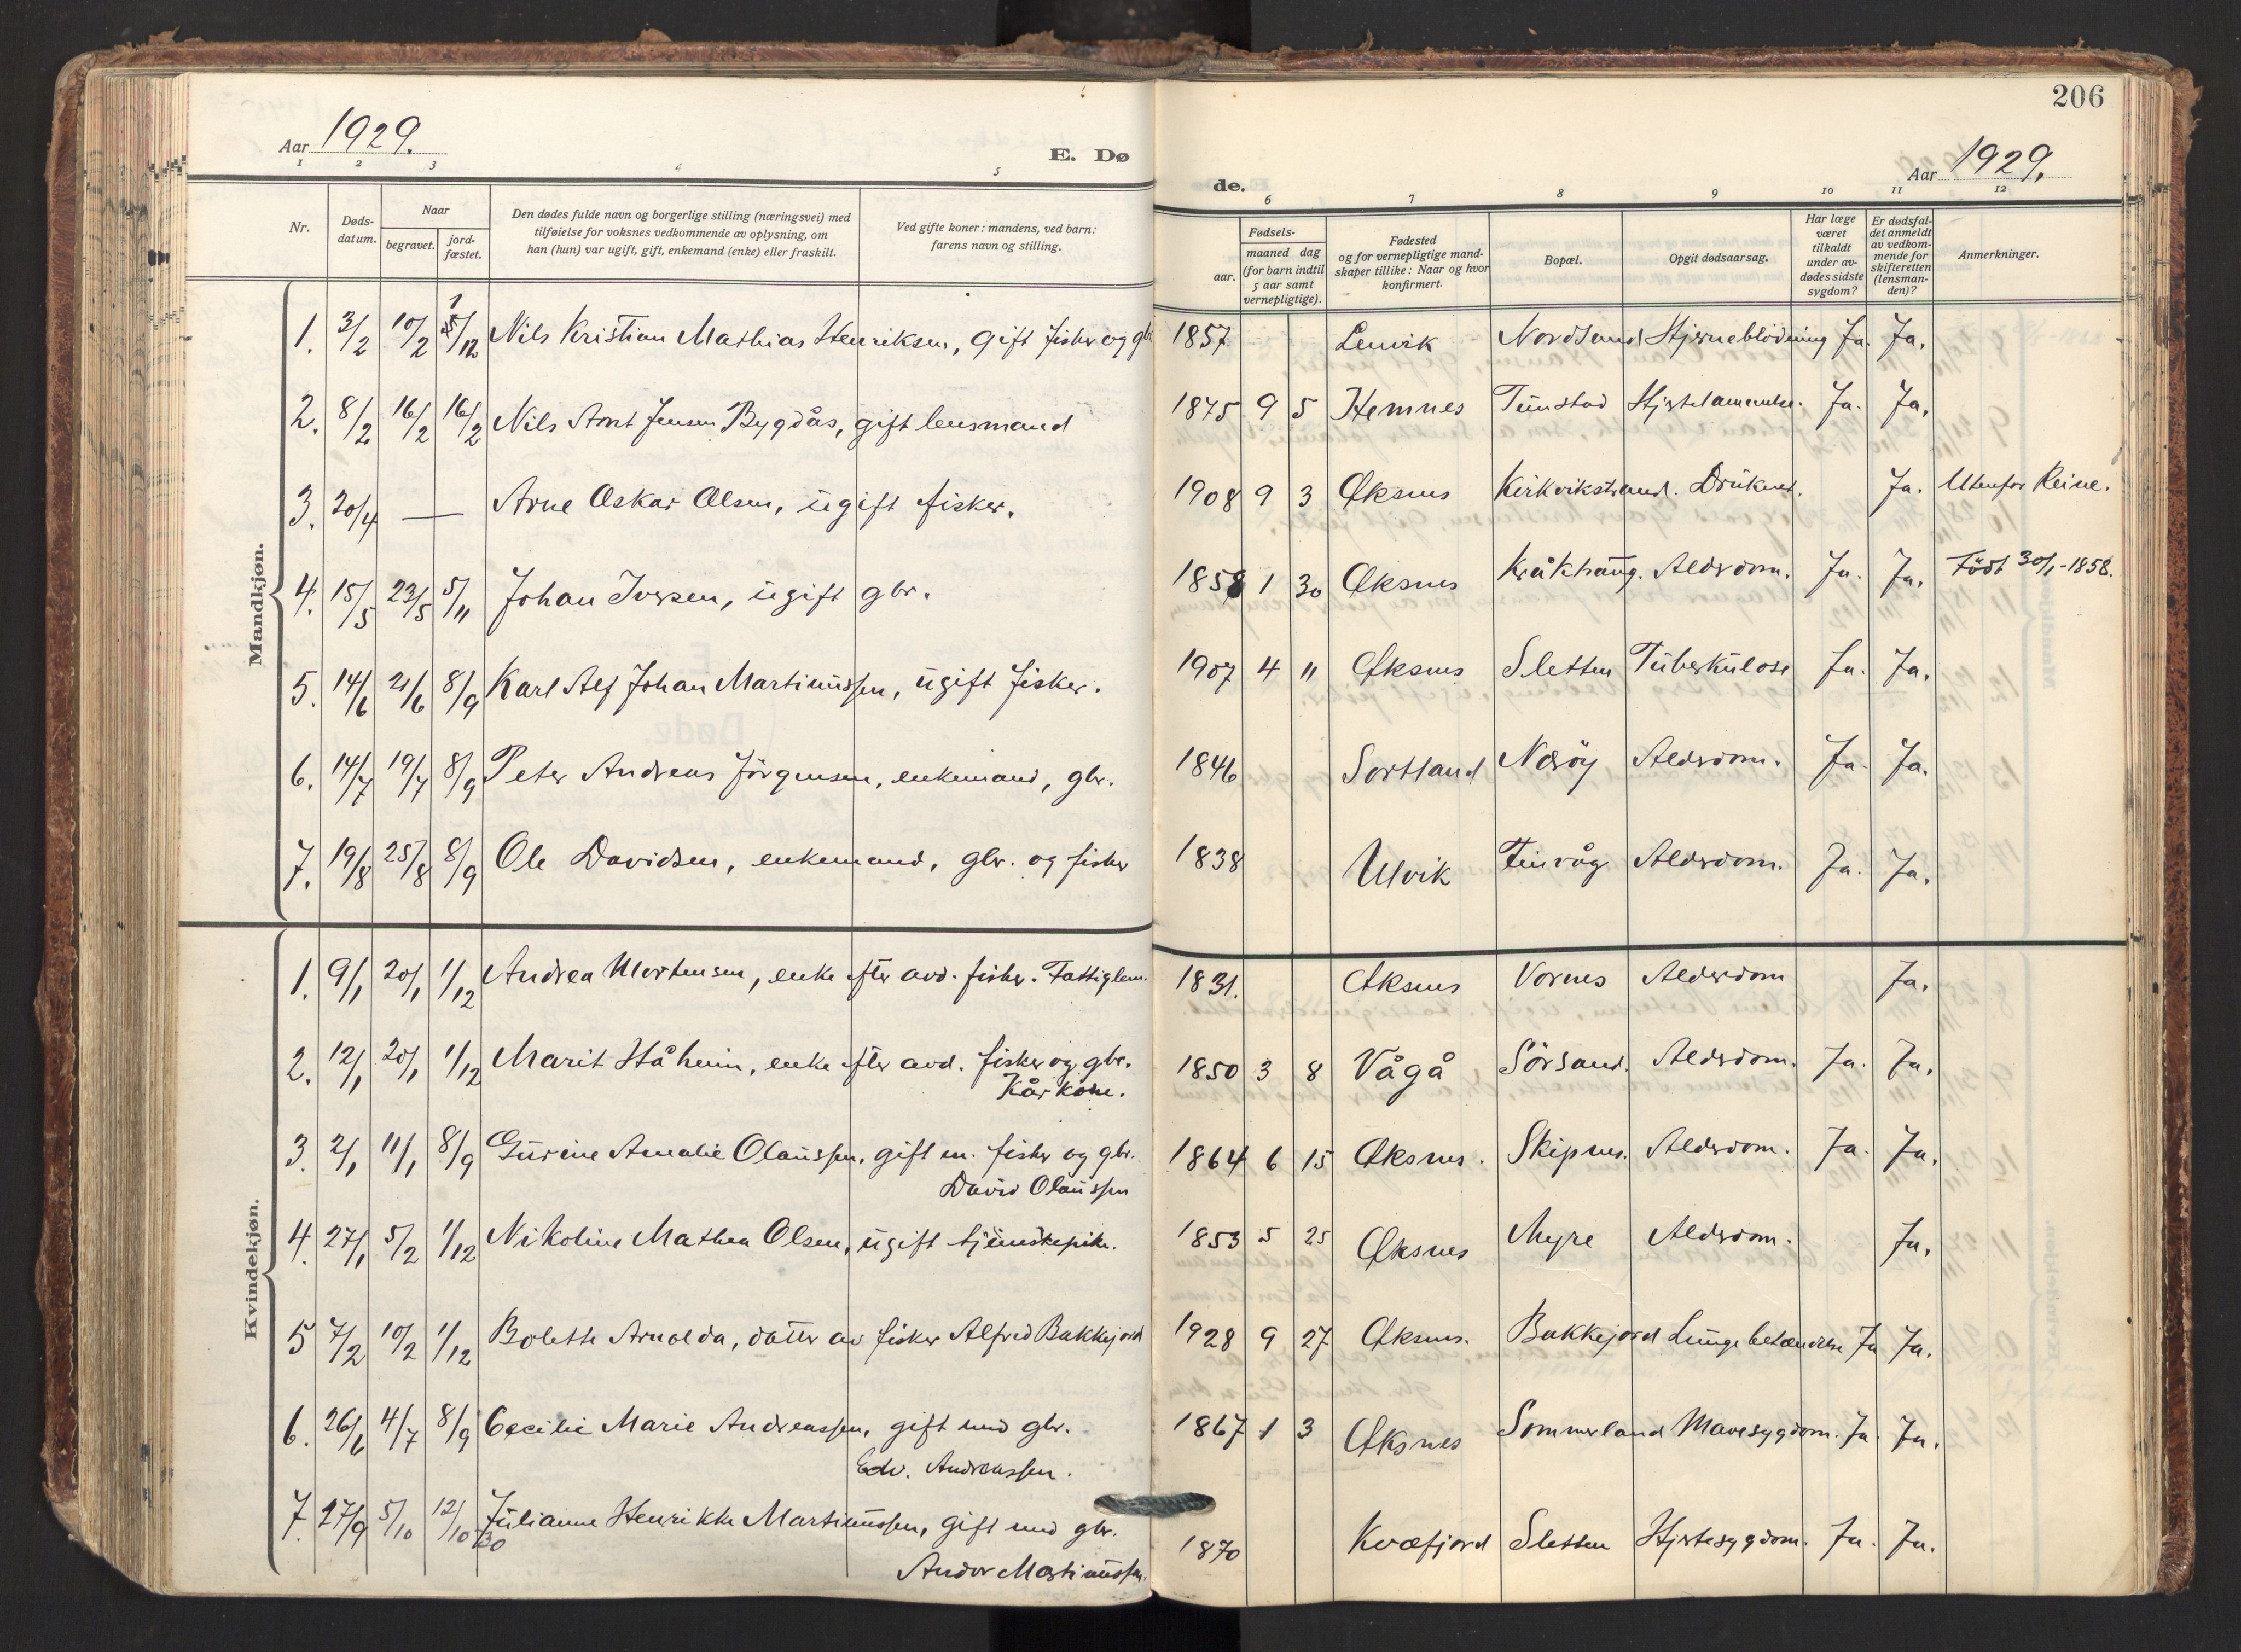 206
Aar 1929.
E. Dø
de.
Aar 1929.
1 2 3 4 5 6 7 8 9 10 11 12
Nr.
Døds-
datum.
Naar
begravet.
jord-
fæstet.
Den dødes fulde navn og borgerlige stilling (næringsvei) med
tilføielse for voksnes vedkommende av oplysning, om
han (hun) var ugift, gift, enkemand (enke) eller fraskilt.
Ved gifte koner: mandens, ved barn:
farens navn og stilling.
Fødsels-
aar.
maaned dag
(for barn indtil
5 aar samt
vernepligtige).
Fødested
og for vernepligtige mand-
skaper tillike: Naar og hvor
konfirmert.
Bopæl.
Opgit dødsaarsag.
Har læge
været
tilkaldt
under av-
dødes sidste
sygdom?
Er dødsfal-
det anmeldt
av vedkom-
mende for
skifteretten
(lensman-
den)?
Anmerkninger.
Mandkjøn.
1. 3/2 10/2 /12 Nils Kristian Mathias Henriksen, gift fisker og gbr. 1857 Lenvik Nordsand Hjerneblödning Ja. Ja.
2. 8/2 16/2 16/2 Nils Arnt Jensen Bygdås, gift lensmand 1875 9 5 Hemnes Tunstad Hjertelammelse. Ja. Ja.
3. 20/4 — Arne Oskar Olsen, ugift fisker. 1908 9 3 Øksnes Kirkvikstrand. Druknet. Ja. Utenfor Reine.
4. 15/5 23/5 5/11 Johan Iversen, ugift gbr. 1858 1 30 Øksnes Kråkhaug. Alderdom. Ja. Ja. Född 30/1-1858.
5. 14/6 21/6 8/9 Karl Alf Johan Martinussen, ugift fisker. 1907 4 11 Øksnes Sletten Tuberkulose Ja. Ja.
6. 14/7 19/7 8/9 Peter Andreas Jörgensen, enkemand, gbr. 1846 Sortland Nærøy Alderdom. Ja. Ja.
7. 19/8 25/8 8/9 Ole Davidsen, enkemand, gbr. og fisker 1838 Ulvik Tinvåg Alderdom. Ja. Ja.
Kvindekjøn.
1. 9/1 20/1 1/12 Andrea Mortensen, enke efter avd. fisker. Fattiglem. 1831. Øksnes Vornes Alderdom Ja.
2. 12/1 20/1 1/12 Marit Håheim, enke efter avd. fisker og gbr. 1850 3 8 Vågå Sörsand. Alderdom. Ja. Ja.
Kårkone.
3. 2/1 11/1 8/9 Gurine Amalie Olaussen, gift m. fisker og gbr. 1864 6 15 Øksnes. Skipnes. Alderdom. Ja. Ja.
David Olaussen
4. 27/1 5/2 1/12 Nikoline Mathea Olsen, ugift tjenestepike. 1853 5 25 Øksnes Myre Alderdom. Ja.
5 7/2 10/2 1/12 Bolette Arnolda, datter av fisker Alfred Bakkejord 1928 9 27 Øksnes. Bakkejord Lungebetændelse Ja Ja.
6. 26/6 4/7 8/9 Cecilie Marie Andreassen, gift med gbr. 1867 1 3 Øksnes Sommerland Mavesygdom. Ja. Ja.
Edv. Andreassen.
7. 27/9 5/10 12/10 30 Julianne Henrikke Martinussen, gift med gbr. 1870 Kvæfjord Sletten Hjertesygdom. Ja. Ja.
Andor Martinussen.